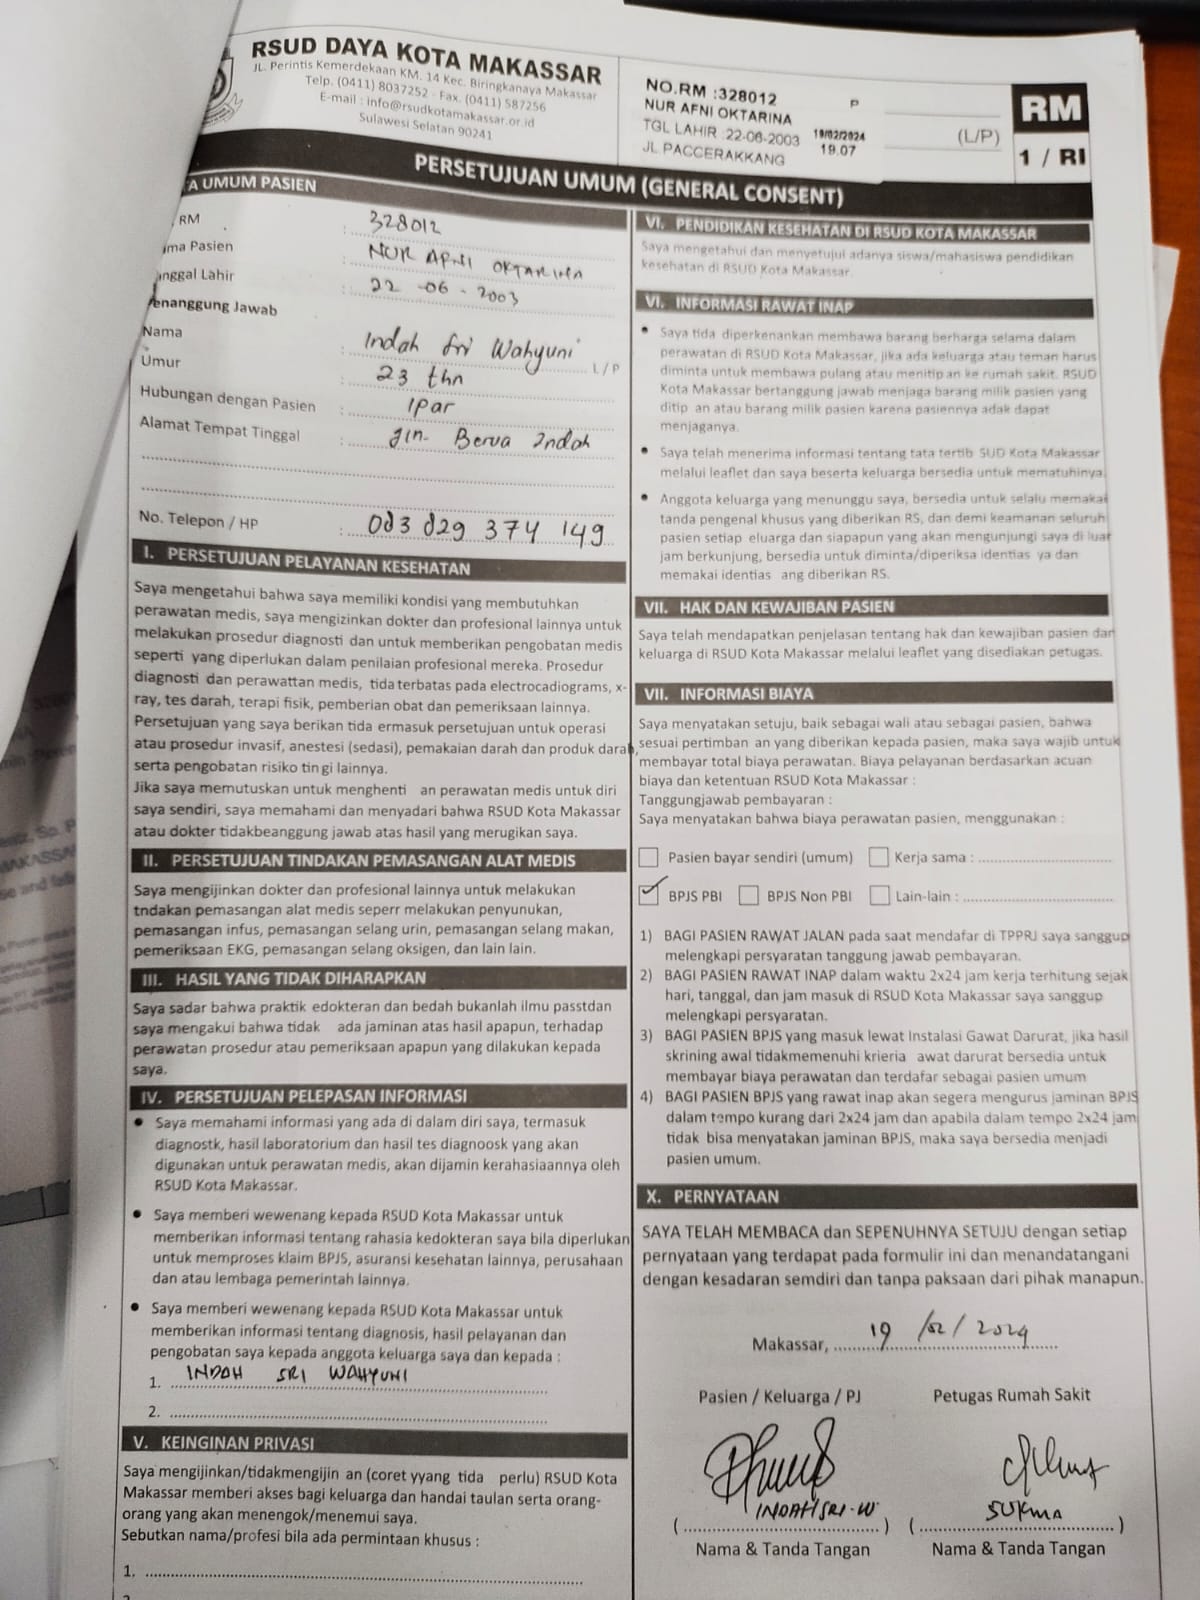 RSUD DAYA KOTA MAKASSAR
JL. Perintis Kemerdekaan KM. 14 Kec. Biringkanaya Makassar
Telp. (0411) 8037252 - Fax. (0411) 587256
E-mail : info@rsudkotamakassar.or.id
Sulawesi Selatan 90241
NO.RM :328012 P
NUR AFNI OKTARINA
TGL LAHIR :22-06-2003 19/02/2024
JL PACCERAKKANG 19.07
(L/P)
RM
1 / RI
PERSETUJUAN UMUM (GENERAL CONSENT)
A UMUM PASIEN
RM : 328012
ma Pasien : NUR AFNI OKTARINA
nggal Lahir : 22 -06 - 2003
enanggung Jawab
Nama : Indah Sri Wahyuni L/P
Umur : 23 thn
Hubungan dengan Pasien : Ipar
Alamat Tempat Tinggal : Jln. Berua Indah
No. Telepon / HP : 083 829 374 149
I. PERSETUJUAN PELAYANAN KESEHATAN
Saya mengetahui bahwa saya memiliki kondisi yang membutuhkan
perawatan medis, saya mengizinkan dokter dan profesional lainnya untuk
melakukan prosedur diagnosti dan untuk memberikan pengobatan medis
seperti yang diperlukan dalam penilaian profesional mereka. Prosedur
diagnosti dan perawattan medis, tida terbatas pada electrocadiograms, x-
ray, tes darah, terapi fisik, pemberian obat dan pemeriksaan lainnya.
Persetujuan yang saya berikan tida ermasuk persetujuan untuk operasi
atau prosedur invasif, anestesi (sedasi), pemakaian darah dan produk darah,
serta pengobatan risiko tin gi lainnya.
Jika saya memutuskan untuk menghenti an perawatan medis untuk diri
saya sendiri, saya memahami dan menyadari bahwa RSUD Kota Makassar
atau dokter tidakbeanggung jawab atas hasil yang merugikan saya.
II. PERSETUJUAN TINDAKAN PEMASANGAN ALAT MEDIS
Saya mengijinkan dokter dan profesional lainnya untuk melakukan
tndakan pemasangan alat medis seperr melakukan penyunukan,
pemasangan infus, pemasangan selang urin, pemasangan selang makan,
pemeriksaan EKG, pemasangan selang oksigen, dan lain lain.
III. HASIL YANG TIDAK DIHARAPKAN
Saya sadar bahwa praktik edokteran dan bedah bukanlah ilmu passtdan
saya mengakui bahwa tidak ada jaminan atas hasil apapun, terhadap
perawatan prosedur atau pemeriksaan apapun yang dilakukan kepada
saya.
IV. PERSETUJUAN PELEPASAN INFORMASI
• Saya memahami informasi yang ada di dalam diri saya, termasuk
diagnostk, hasil laboratorium dan hasil tes diagnoosk yang akan
digunakan untuk perawatan medis, akan dijamin kerahasiaannya oleh
RSUD Kota Makassar.
• Saya memberi wewenang kepada RSUD Kota Makassar untuk
memberikan informasi tentang rahasia kedokteran saya bila diperlukan
untuk memproses klaim BPJS, asuransi kesehatan lainnya, perusahaan
dan atau lembaga pemerintah lainnya.
• Saya memberi wewenang kepada RSUD Kota Makassar untuk
memberikan informasi tentang diagnosis, hasil pelayanan dan
pengobatan saya kepada anggota keluarga saya dan kepada :
1. INDAH SRI WAHYUNI
2.
V. KEINGINAN PRIVASI
Saya mengijinkan/tidakmengijin an (coret yyang tida perlu) RSUD Kota
Makassar memberi akses bagi keluarga dan handai taulan serta orang-
orang yang akan menengok/menemui saya.
Sebutkan nama/profesi bila ada permintaan khusus :
1.
VI. PENDIDIKAN KESEHATAN DI RSUD KOTA MAKASSAR
Saya mengetahui dan menyetujui adanya siswa/mahasiswa pendidikan
kesehatan di RSUD Kota Makassar.
VI. INFORMASI RAWAT INAP
• Saya tida diperkenankan membawa barang berharga selama dalam
perawatan di RSUD Kota Makassar, jika ada keluarga atau teman harus
diminta untuk membawa pulang atau menitip an ke rumah sakit. RSUD
Kota Makassar bertanggung jawab menjaga barang milik pasien yang
ditip an atau barang milik pasien karena pasiennya adak dapat
menjaganya.
• Saya telah menerima informasi tentang tata tertib SUD Kota Makassar
melalui leaflet dan saya beserta keluarga bersedia untuk mematuhinya.
• Anggota keluarga yang menunggu saya, bersedia untuk selalu memakai
tanda pengenal khusus yang diberikan RS, dan demi keamanan seluruh
pasien setiap eluarga dan siapapun yang akan mengunjungi saya di luar
jam berkunjung, bersedia untuk diminta/diperiksa identias ya dan
memakai identias ang diberikan RS.
VII. HAK DAN KEWAJIBAN PASIEN
Saya telah mendapatkan penjelasan tentang hak dan kewajiban pasien dan
keluarga di RSUD Kota Makassar melalui leaflet yang disediakan petugas.
VII. INFORMASI BIAYA
Saya menyatakan setuju, baik sebagai wali atau sebagai pasien, bahwa
sesuai pertimban an yang diberikan kepada pasien, maka saya wajib untuk
membayar total biaya perawatan. Biaya pelayanan berdasarkan acuan
biaya dan ketentuan RSUD Kota Makassar :
Tanggungjawab pembayaran :
Saya menyatakan bahwa biaya perawatan pasien, menggunakan :
Pasien bayar sendiri (umum) Kerja sama :
✓ BPJS PBI BPJS Non PBI Lain-lain :
1) BAGI PASIEN RAWAT JALAN pada saat mendafar di TPPRJ saya sanggup
melengkapi persyaratan tanggung jawab pembayaran.
2) BAGI PASIEN RAWAT INAP dalam waktu 2x24 jam kerja terhitung sejak
hari, tanggal, dan jam masuk di RSUD Kota Makassar saya sanggup
melengkapi persyaratan.
3) BAGI PASIEN BPJS yang masuk lewat Instalasi Gawat Darurat, jika hasil
skrining awal tidakmemenuhi krieria awat darurat bersedia untuk
membayar biaya perawatan dan terdafar sebagai pasien umum
4) BAGI PASIEN BPJS yang rawat inap akan segera mengurus jaminan BPJS
dalam tempo kurang dari 2x24 jam dan apabila dalam tempo 2x24 jam
tidak bisa menyatakan jaminan BPJS, maka saya bersedia menjadi
pasien umum.
X. PERNYATAAN
SAYA TELAH MEMBACA dan SEPENUHNYA SETUJU dengan setiap
pernyataan yang terdapat pada formulir ini dan menandatangani
dengan kesadaran semdiri dan tanpa paksaan dari pihak manapun.
Makassar, 19 /02/ 2024
Pasien / Keluarga / PJ Petugas Rumah Sakit
INDAH SRI-W SUKMA
Nama & Tanda Tangan Nama & Tanda Tangan